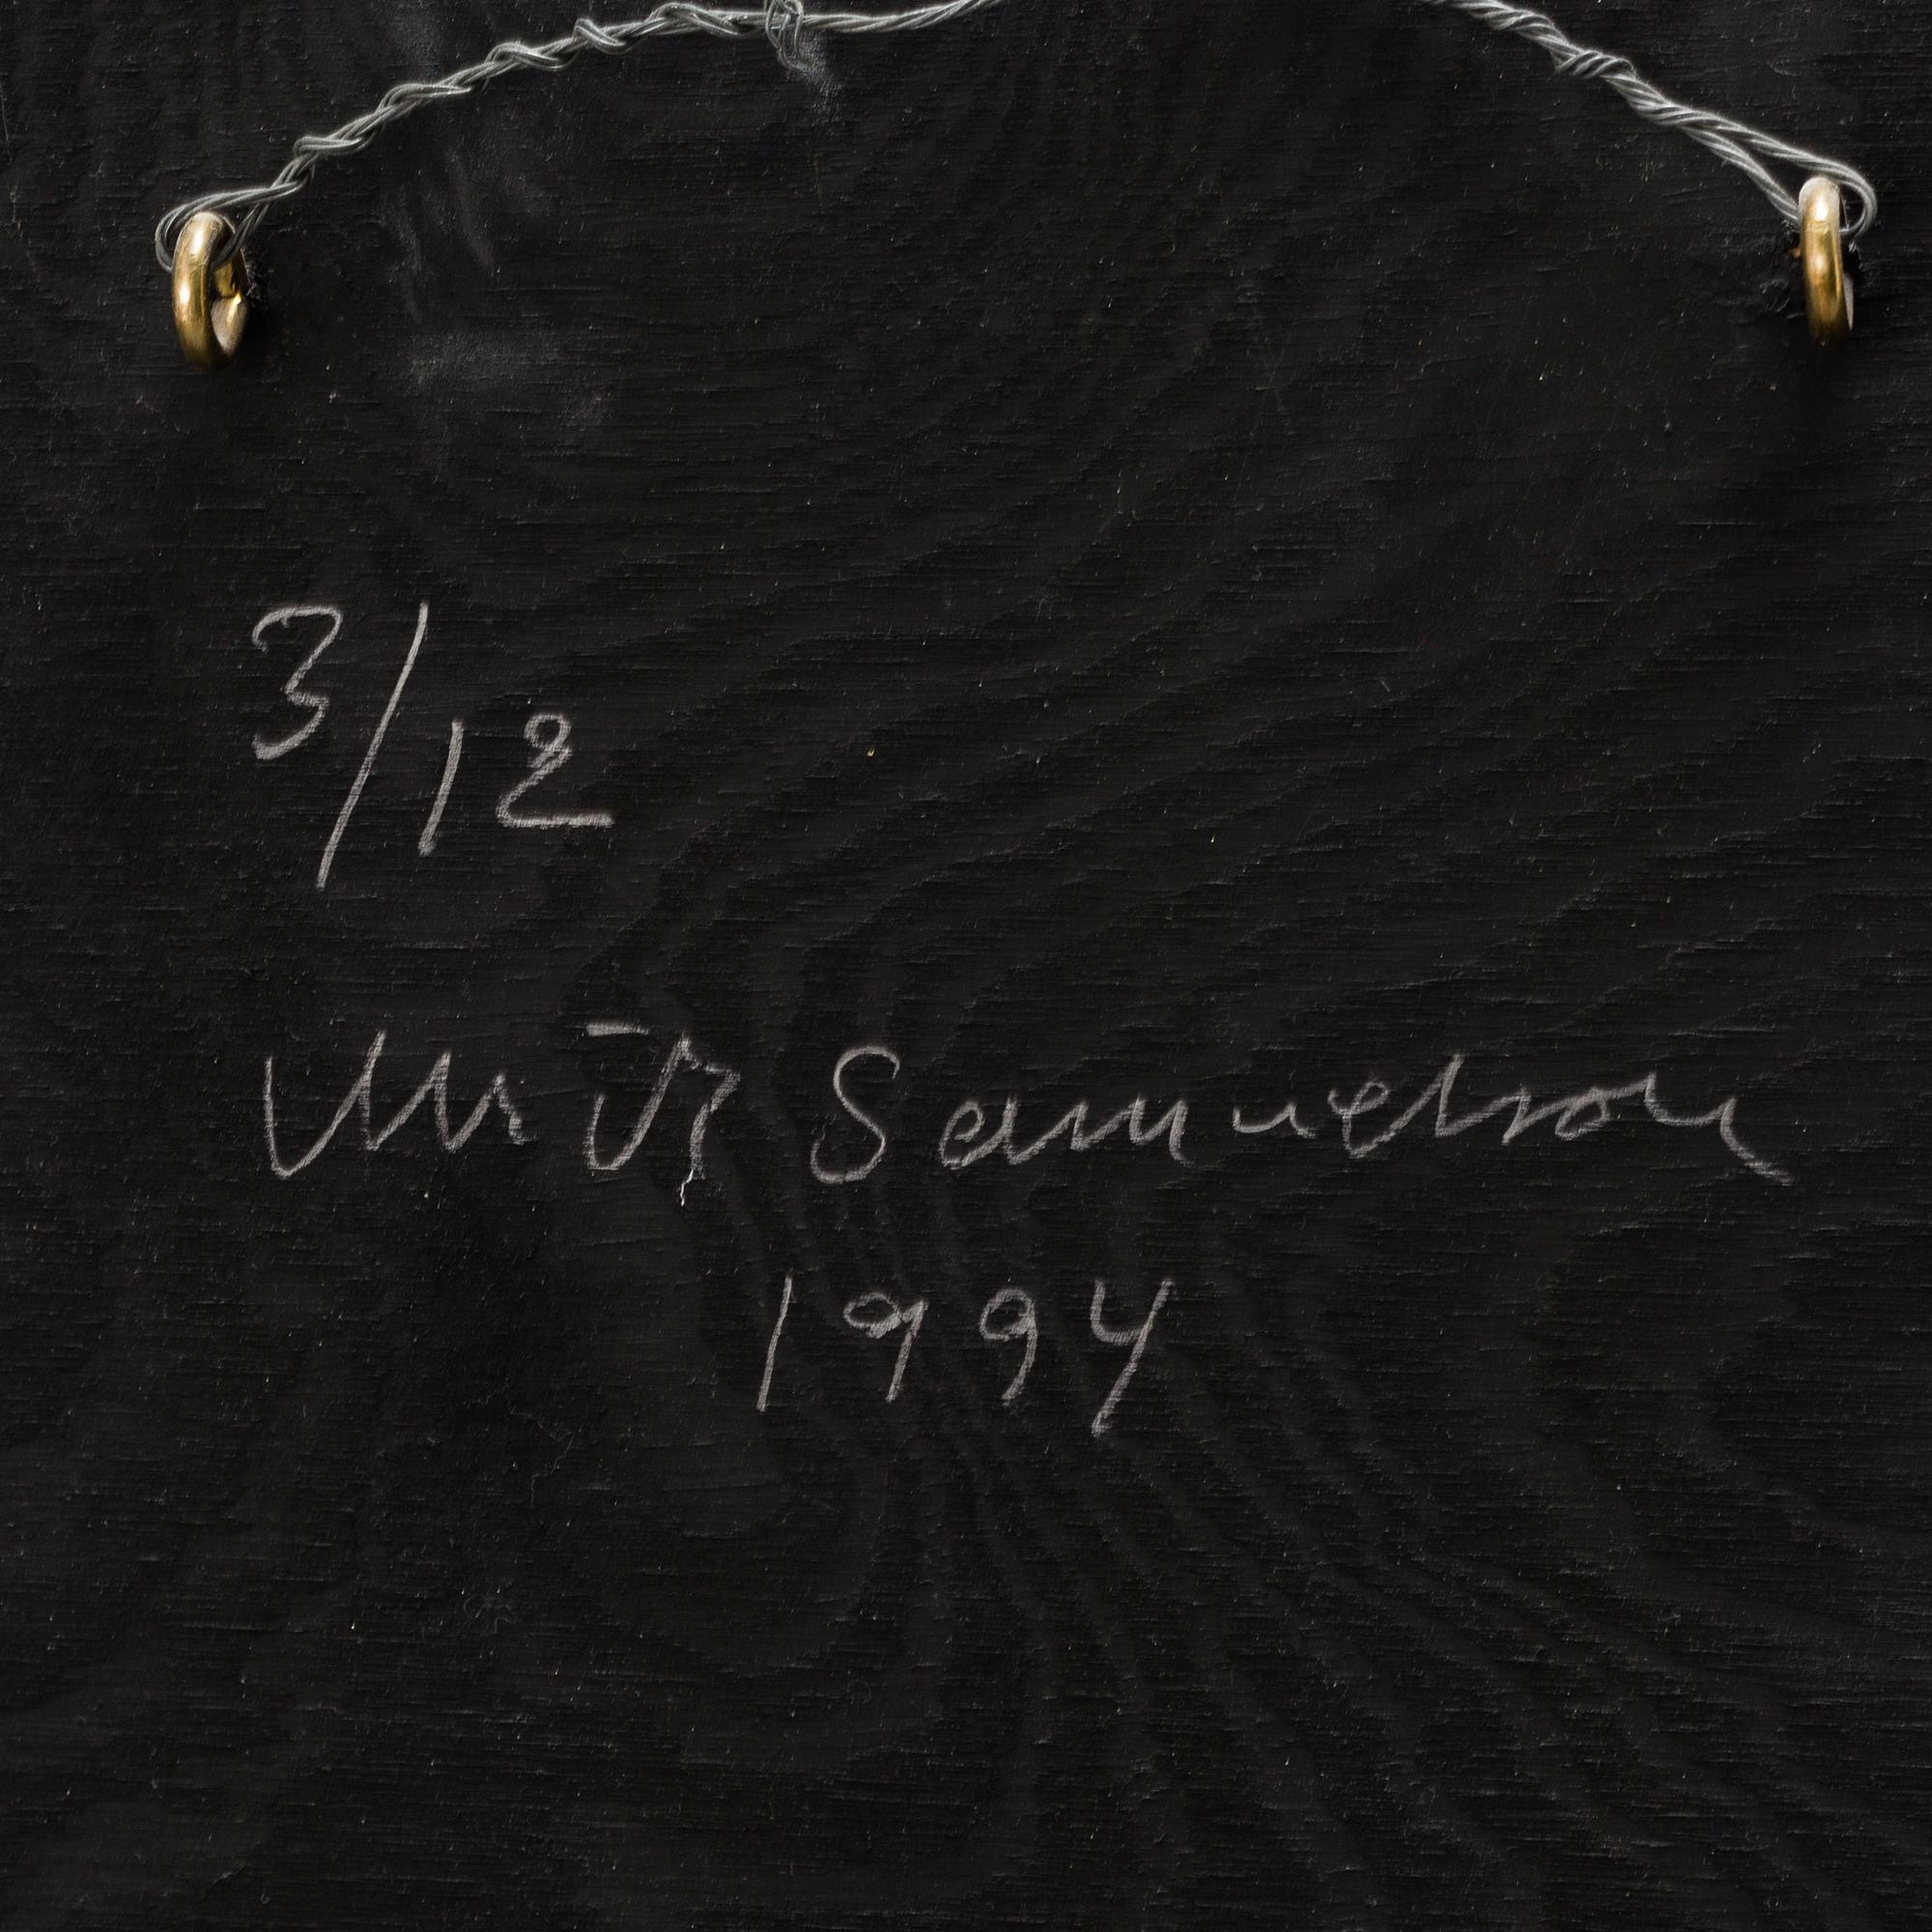 3/12
Ulrik Samuelson
1994